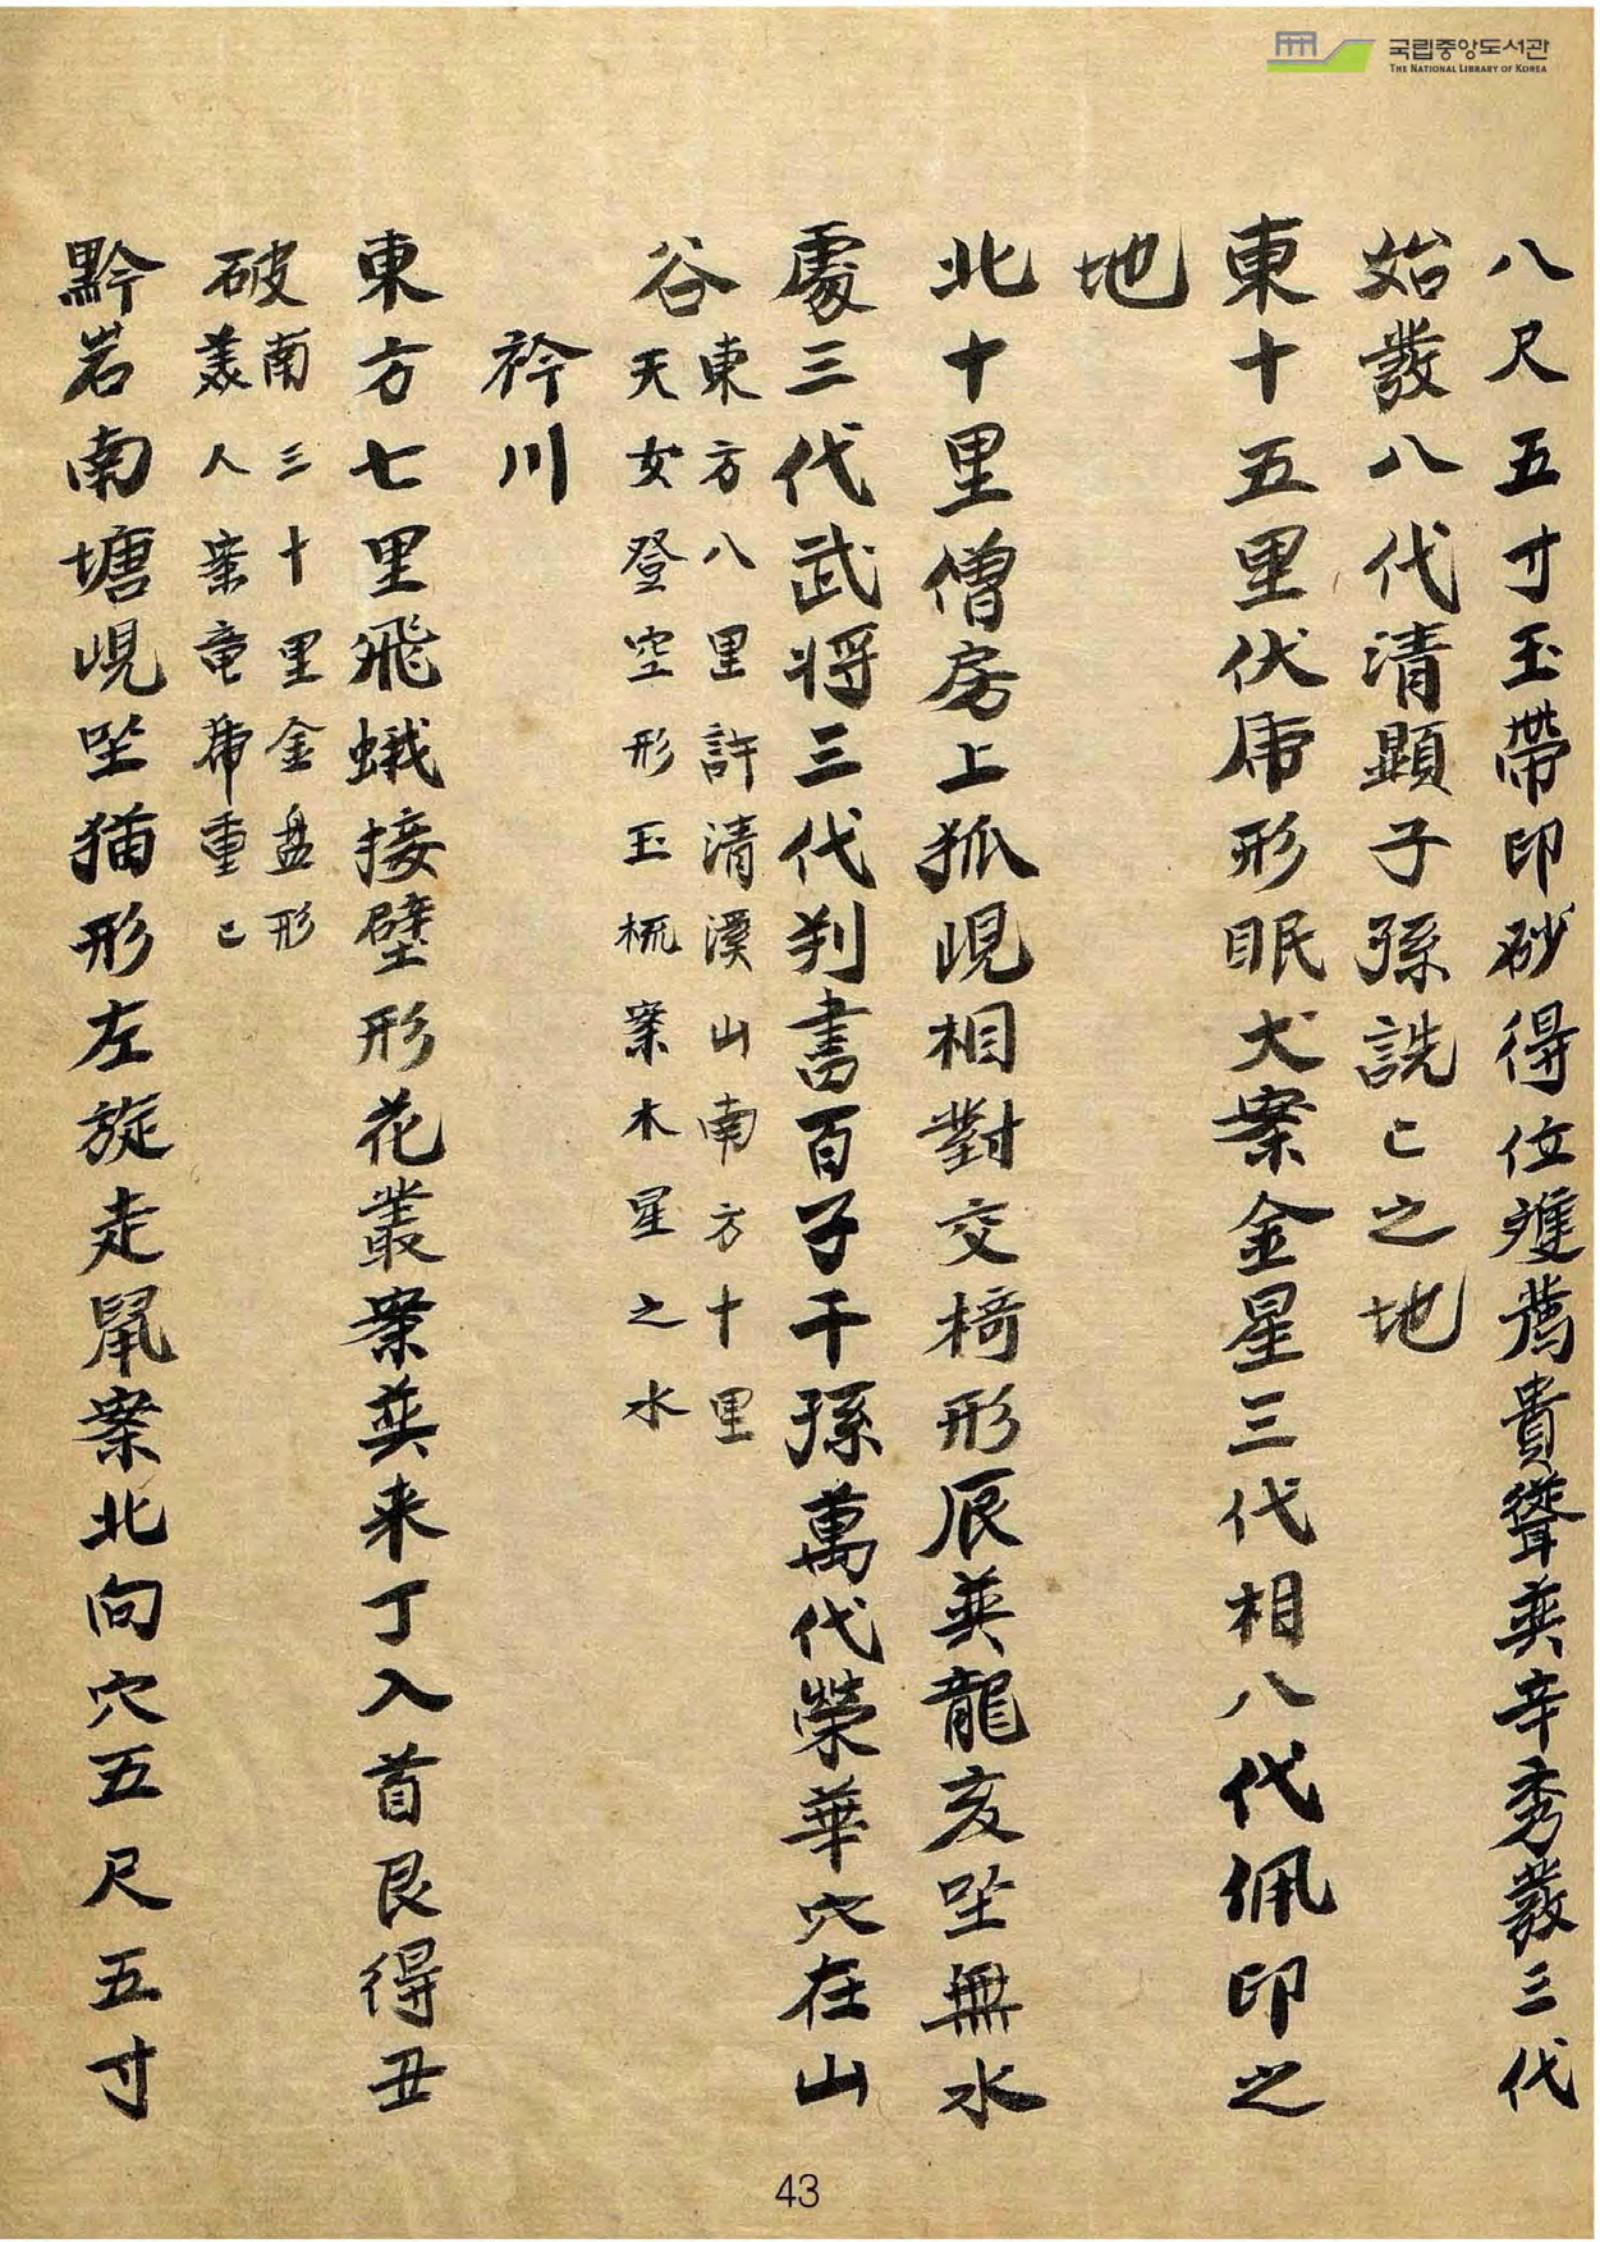 국립중앙도서관
THE NATIONAL LIBRARY OF KOREA
八尺五寸玉帶印砂得位雙薦貴聳巽辛秀發三代
始發八代清顯子孫詵〻之地
東十五里伏虎形眠犬案金星三代相八代佩印之
地
北十里僧房上狐峴相對交椅形辰巽龍亥坐無水
處三代武將三代判書百子千孫萬代榮華穴在山
谷東方八里許清溪山南方十里
天女登空形玉梳案木星之水
衿川
東方七里飛蛾接壁形花叢案巽来丁入首艮得丑
破南三十里金盘形
美人案竜帯重〻
黔岩南塘峴坐猫形左旋走鼠案北向穴五尺五寸
43